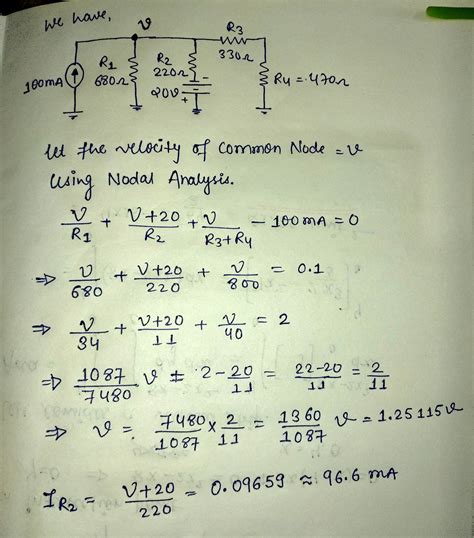 We have,
v
R3
330Ω
100mA
R1
680Ω
R2
220Ω
20V
R4 = 470Ω
let the velocity of Common Node = v
Using Nodal Analysis.
v/R1 + V+20/R2 + v/R3+R4 - 100mA = 0
⇒ v/680 + V+20/220 + v/800 = 0.1
⇒ v/34 + v+20/11 + v/40 = 2
⇒ 1087/7480 v = 2 - 20/11 = 22-20/11 = 2/11
⇒ v = 7480/1087 × 2/11 = 1360/1087 v = 1.25115v
IR2 = V+20/220 = 0.09659 ≈ 96.6 mA